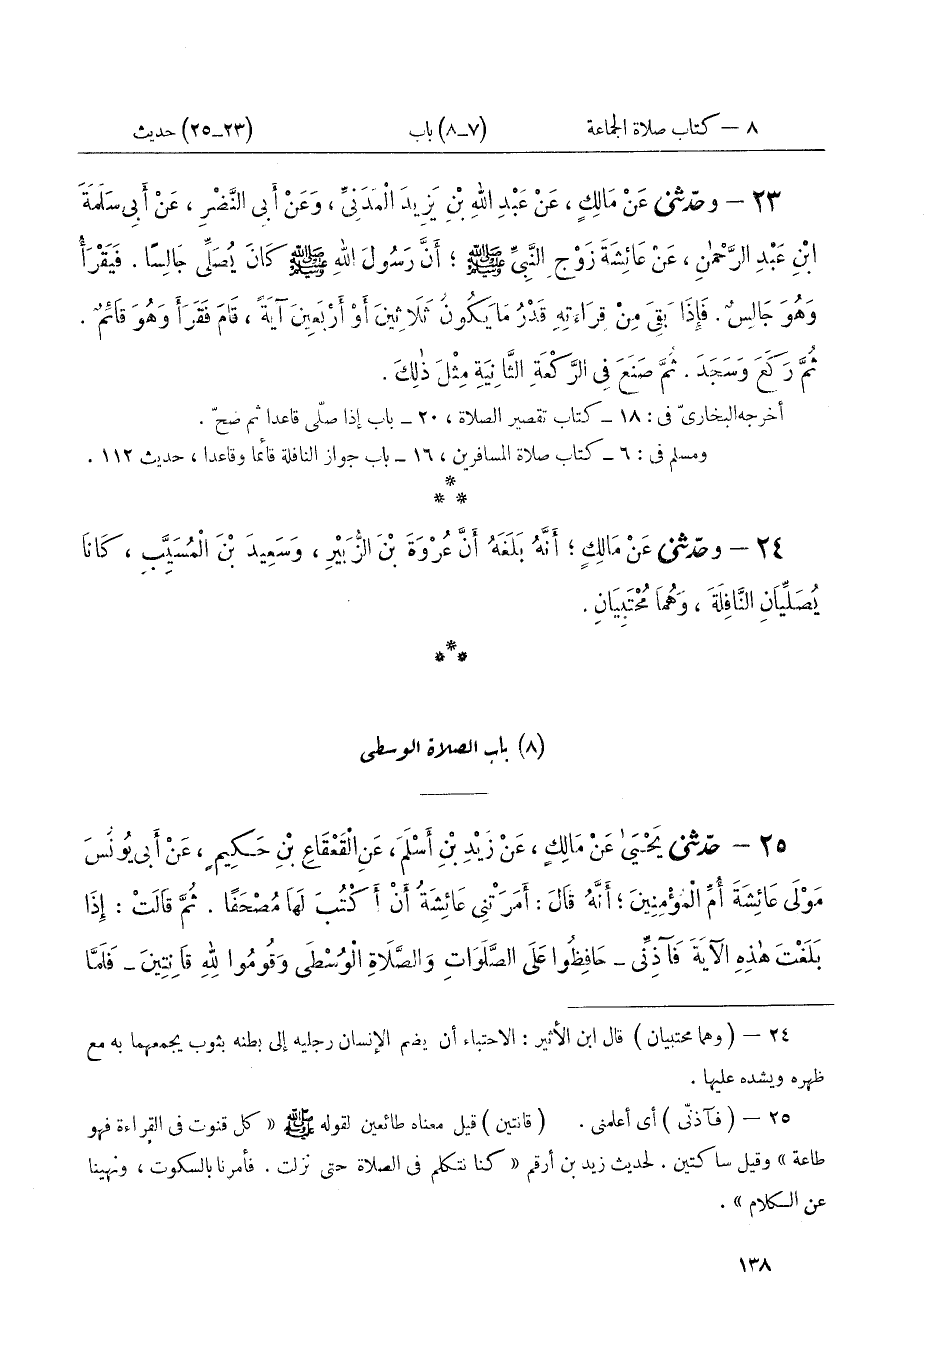 ٨ – كتاب صلاة الجماعة (٧–٨) باب (٢٣–٢٥) حديث
٢٣ – وحدّثني عَنْ مَالِكٍ، عَنْ عَبْدِ اللهِ بْنِ يَزِيدَ الْمَدَنِيِّ، وَعَنْ أَبِي النَّضْرِ، عَنْ أَبِي سَلَمَةَ
ابْنِ عَبْدِ الرَّحْمٰنِ، عَنْ عَائِشَةَ زَوْجِ النَّبِيِّ ﷺ؛ أَنَّ رَسُولَ اللهِ ﷺ كَانَ يُصَلِّي جَالِسًا. فَيَقْرَأُ
وَهُوَ جَالِسٌ. فَإِذَا بَقِيَ مِنْ قِرَاءَتِهِ قَدْرُ مَا يَكُونُ ثَلَاثِينَ أَوْ أَرْبَعِينَ آيَةً، قَامَ فَقَرَأَ وَهُوَ قَائِمٌ.
ثُمَّ رَكَعَ وَسَجَدَ. ثُمَّ صَنَعَ فِي الرَّكْعَةِ الثَّانِيَةِ مِثْلَ ذٰلِكَ.
أخرجه البخاريّ في: ١٨ – كتاب تقصير الصلاة، ٢٠ – باب إذا صلّى قاعدا ثم صحّ.
ومسلم في: ٦ – كتاب صلاة المسافرين، ١٦ – باب جواز النافلة قائما وقاعدا، حديث ١١٢.
*
* *
٢٤ – وحدّثني عَنْ مَالِكٍ؛ أَنَّهُ بَلَغَهُ أَنَّ عُرْوَةَ بْنَ الزُّبَيْرِ، وَسَعِيدَ بْنَ الْمُسَيَّبِ، كَانَا
يُصَلِّيَانِ النَّافِلَةَ، وَهُمَا مُحْتَبِيَانِ.
*
* *
(٨) باب الصلاة الوسطى
٢٥ – حدّثني يَحْيَىٰ عَنْ مَالِكٍ، عَنْ زَيْدِ بْنِ أَسْلَمَ، عَنِ الْقَعْقَاعِ بْنِ حَكِيمٍ، عَنْ أَبِي يُونُسَ
مَوْلَى عَائِشَةَ أُمِّ الْمُؤْمِنِينَ؛ أَنَّهُ قَالَ: أَمَرَتْنِي عَائِشَةُ أَنْ أَكْتُبَ لَهَا مُصْحَفًا. ثُمَّ قَالَتْ: إِذَا
بَلَغْتَ هٰذِهِ الْآيَةَ فَآذِنِّي – حَافِظُوا عَلَى الصَّلَوَاتِ وَالصَّلَاةِ الْوُسْطَى وَقُومُوا لِلهِ قَانِتِينَ – فَلَمَّا
٢٤ – (وهما محتبيان) قال ابن الأثير: الاحتباء أن يضم الإنسان رجليه إلى بطنه بثوب يجمعهما به مع
ظهره ويشده عليها.
٢٥ – (فآذنّي) أى أعلمنى. (قانتين) قيل معناه طائعين لقوله ﷺ «كل قنوت فى القراءة فهو
طاعة» وقيل ساكتين. لحديث زيد بن أرقم «كنا نتكلم فى الصلاة حتى نزلت. فأمرنا بالسكوت، ونهينا
عن الكلام».
١٣٨